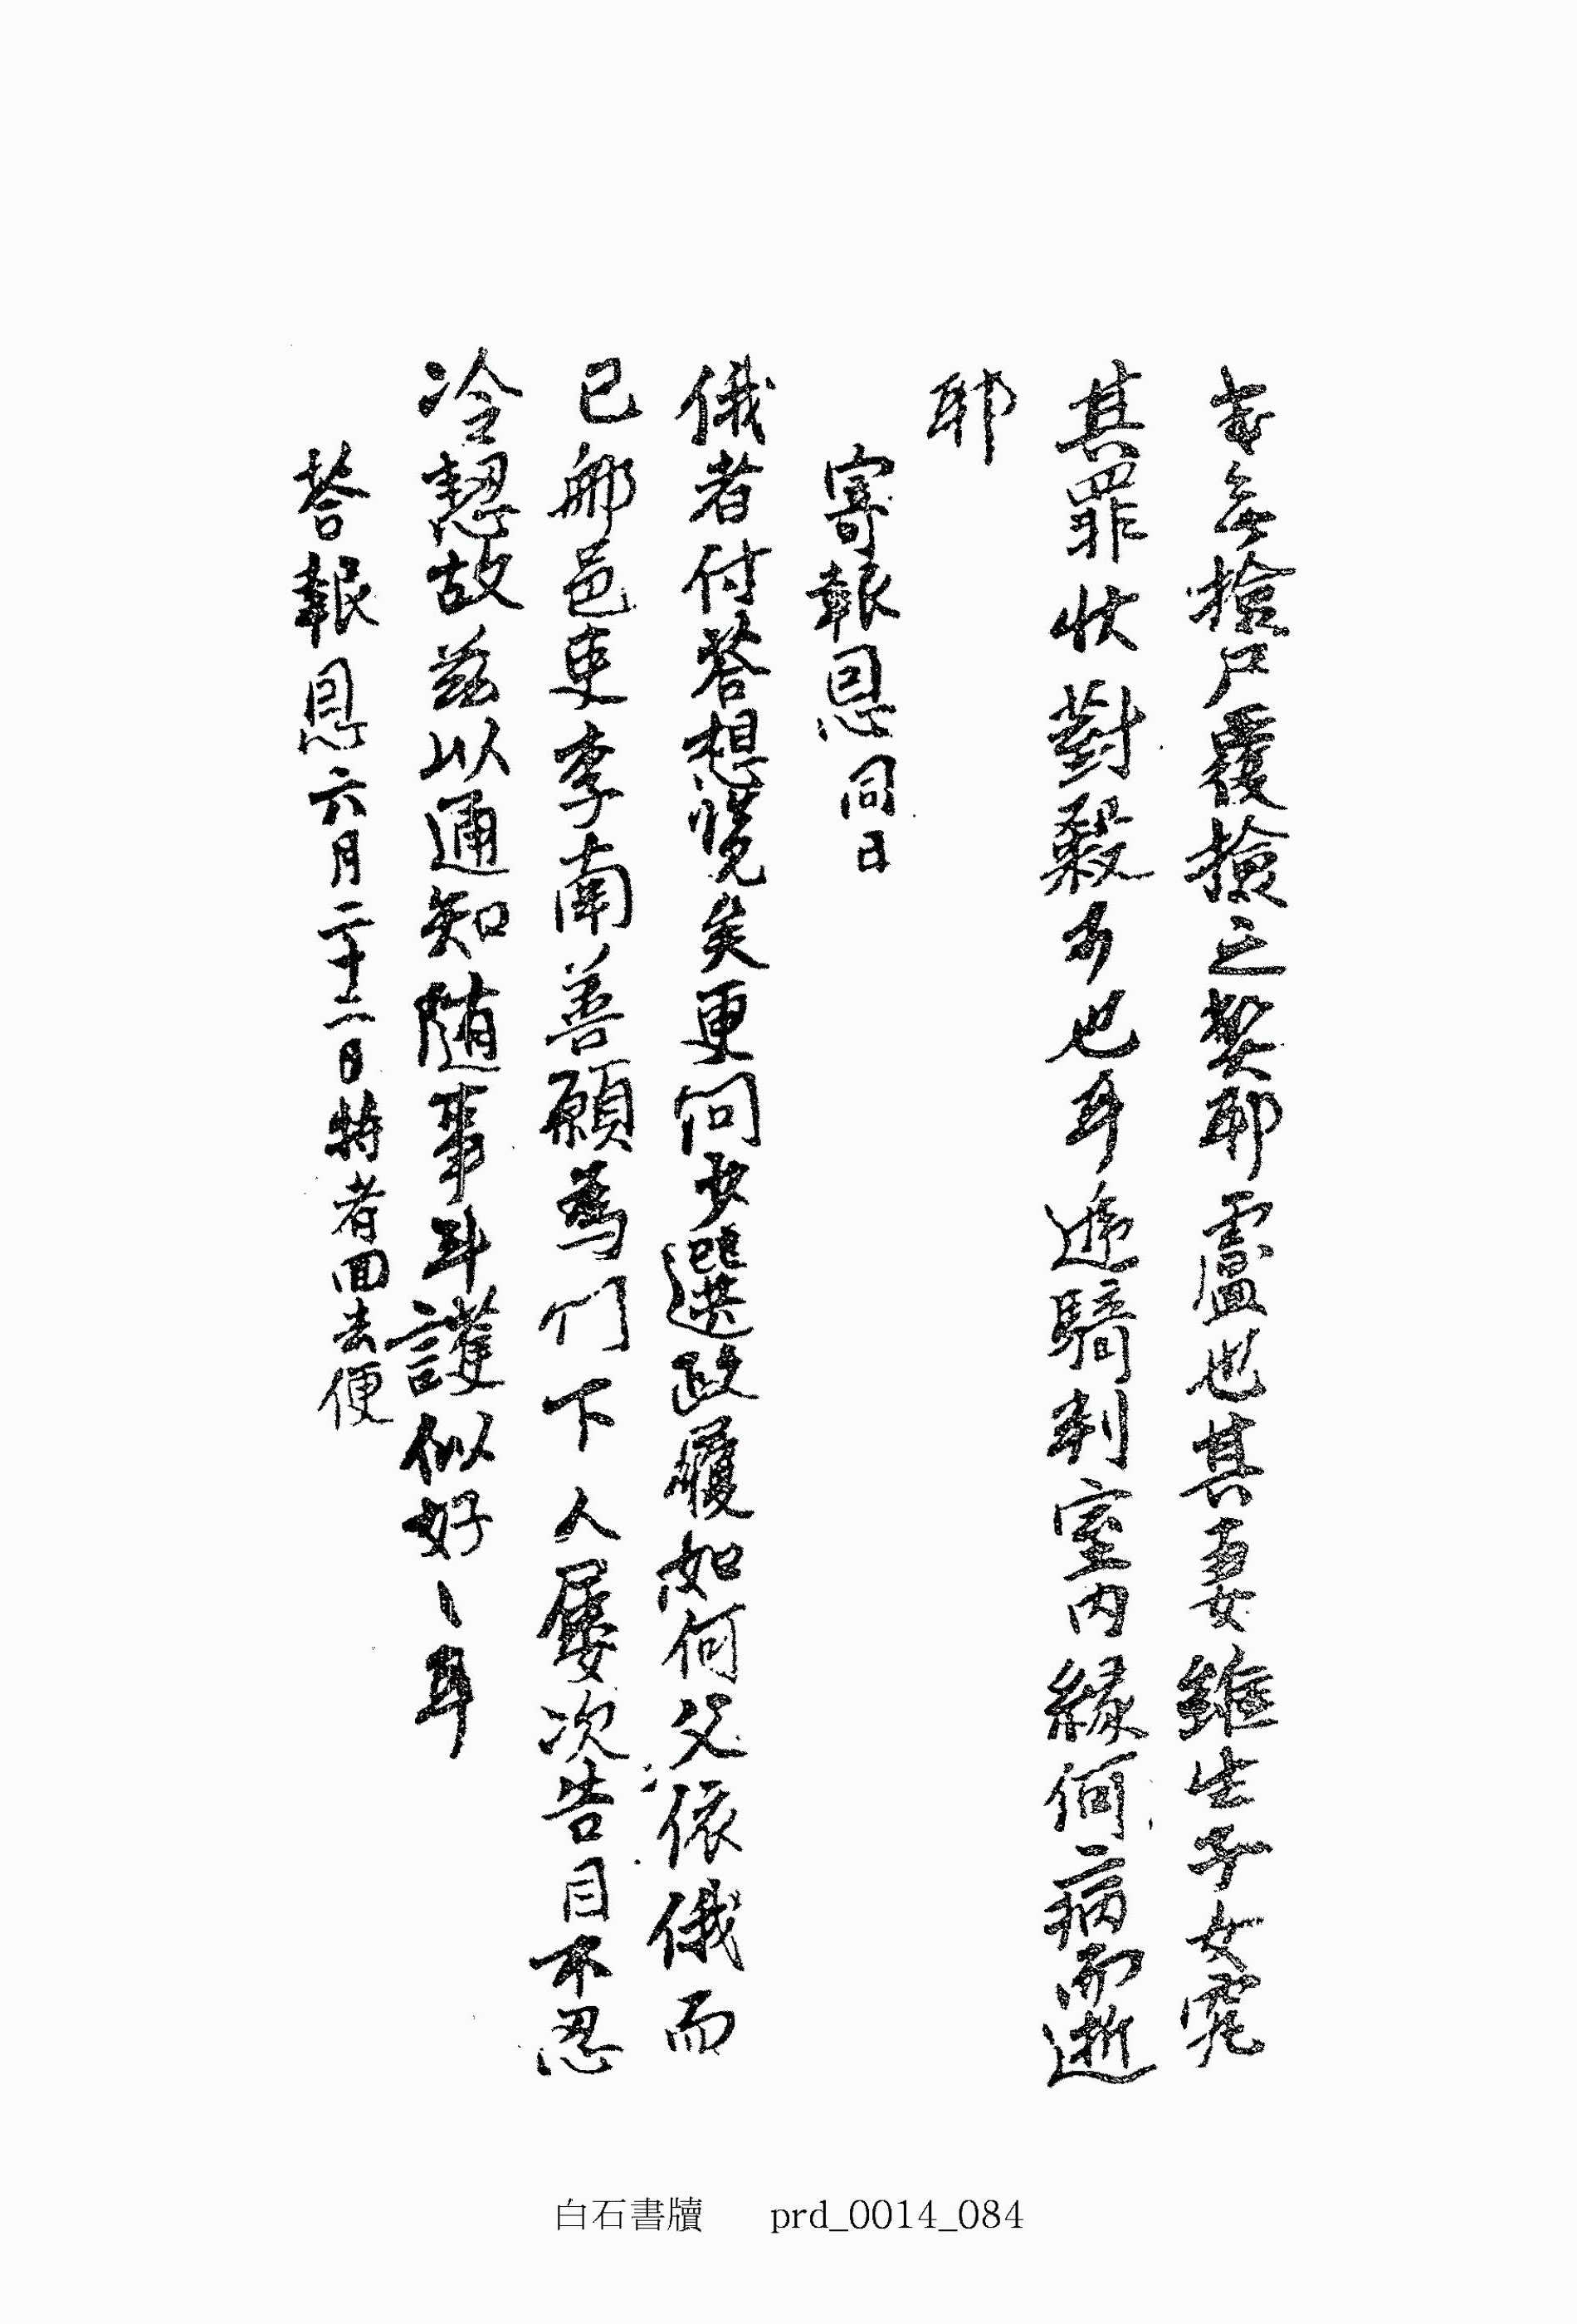 無檢尸覆檢之獘耶盧也其妻雖生子女究
其罪狀對殺可也耳逆騎判室內緣何病而逝
耶
寄報恩同日
俄者付答想覽矣更問少選政履如何父依俄而
已那邑吏李南善願爲門下人屢次告目不忍
冷恝故茲以通知隨事斗護似好〻耳
答報恩六月二十二日特者回去便
白石書牘 prd_0014_084